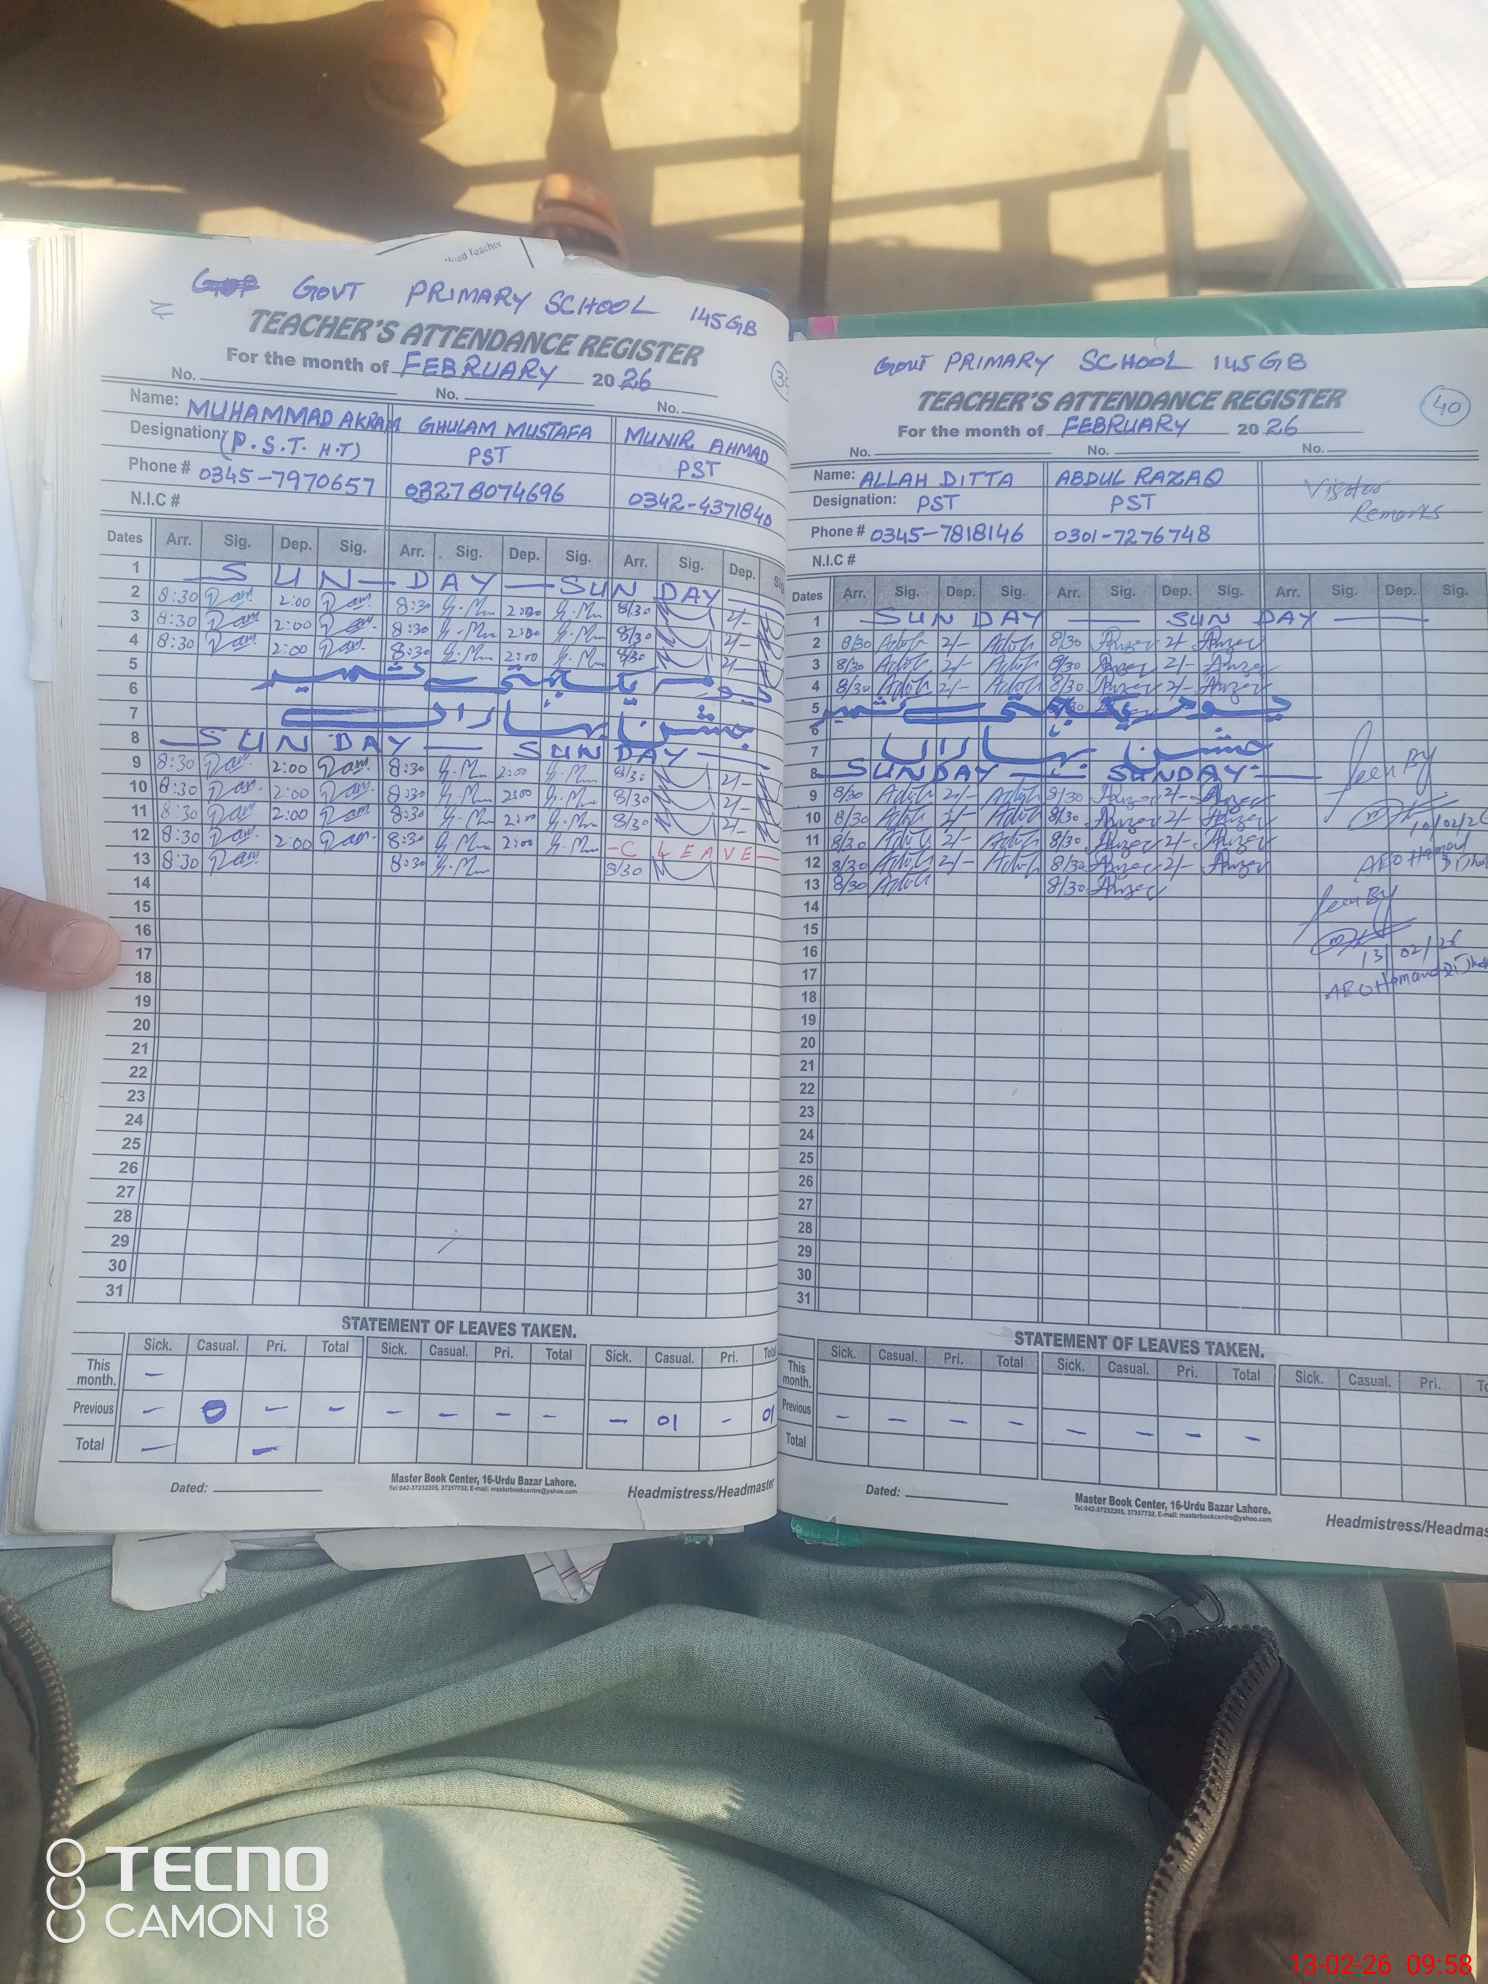 GOVT PRIMARY SCHOOL 145GB
TEACHER'S ATTENDANCE REGISTER
For the month of FEBRUARY 2026
No. No. No.
Name: MUHAMMAD AKRAM GHULAM MUSTAFA MUNIR AHMAD
Designation: (P.S.T. H.T) PST PST
Phone # 0345-7970657 03278074696 0342-4371840
N.I.C #
Dates Arr. Sig. Dep. Sig. Arr. Sig. Dep. Sig. Arr. Sig. Dep.
1 SUN-DAY SUN DAY
2 8:30 2:00 8:30 2:00 8/30 2/-
3 8:30 2:00 8:30 2:00 8/30 2/-
4 8:30 2:00 8:30 2:00 8/30 2/-
5 یوم یکجہتی کشمیر
6
7 جشن بہاراں
8 SUNDAY SUNDAY
9 8:30 2:00 8:30 2:00 8/30 2/-
10 8:30 2:00 8:30 2:00 8/30 2/-
11 8:30 2:00 8:30 2:00 8/30 2/-
12 8:30 2:00 8:30 2:00 -C LEAVE-
13 8:30 8:30 8/30
14
15
16
17
18
19
20
21
22
23
24
25
26
27
28
29
30
31
STATEMENT OF LEAVES TAKEN.
Sick. Casual. Pri. Total Sick. Casual. Pri. Total Sick. Casual. Pri.
This month. -
Previous - 0 - - - - - - - 01 - 01
Total - -
Dated:
Master Book Center, 16-Urdu Bazar Lahore.
Headmistress/Headmaster
GOVT PRIMARY SCHOOL 145GB
TEACHER'S ATTENDANCE REGISTER
40
For the month of FEBRUARY 2026
No. No. No.
Name: ALLAH DITTA ABDUL RAZAQ Visitor
Designation: PST PST Remarks
Phone # 0345-7818146 0301-7276748
N.I.C #
Dates Arr. Sig. Dep. Sig. Arr. Sig. Dep. Sig. Arr. Sig. Dep. Sig.
1 SUNDAY SUN DAY
2 8/30 2/- 8/30 2/-
3 8/30 2/- 8/30 2/-
4 8/30 2/- 8/30 2/-
5 یوم یکجہتی کشمیر
6
7 جشن بہاراں
8 SUNDAY SUNDAY Seen By
9 8/30 2/- 8/30 2/-
10 8/30 2/- 8/30 2/- 10/02/26
11 8/30 2/- 8/30 2/-
12 8/30 2/- 8/30 2/- AEO
13 8/30 8/30
14 Seen By
15
16 13/02/26
17 AEO
18
19
20
21
22
23
24
25
26
27
28
29
30
31
STATEMENT OF LEAVES TAKEN.
Sick. Casual. Pri. Total Sick. Casual. Pri. Total Sick. Casual. Pri.
This month.
Previous - - - - - - - -
Total
Dated:
Master Book Center, 16-Urdu Bazar Lahore.
TECNO
CAMON 18
13-02-26 09:58